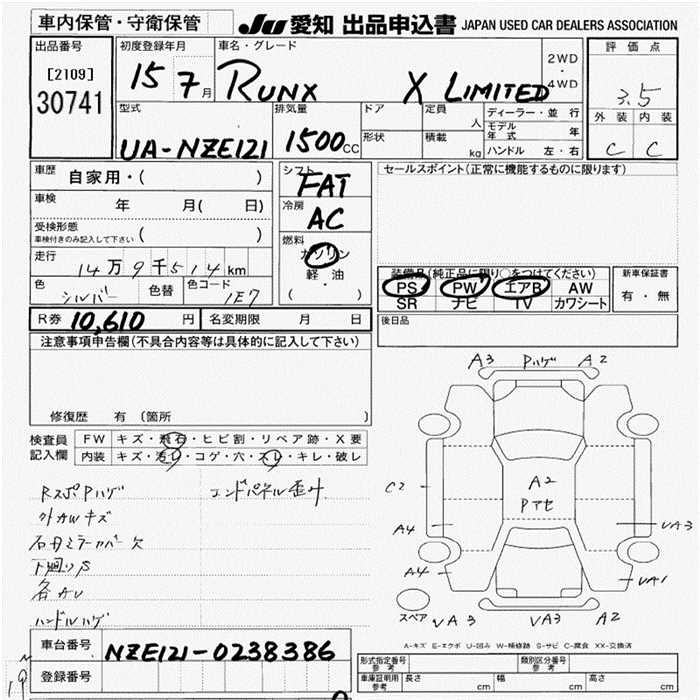 車内保管・守衛保管
JU 愛知 出品申込書 JAPAN USED CAR DEALERS ASSOCIATION
出品番号
[2109]
30741
初度登録年月
15 7月
車名・グレード
RUNX X LIMITED
2WD
・
4WD
評価点
3.5
外装 内装
C C
型式
UA-NZE121
排気量
1500cc
ドア
形状
定員 人
積載 kg
ディーラー・並行
モデル年式 年
ハンドル 左・右
車歴 自家用・( )
車検 年 月( 日)
受検形態
車検付きのみ記入して下さい ( )
走行 14万9千514km
色 シルバー 色替 色コード 1E7
シフト
FAT
冷房
AC
燃料
ガソリン
軽・油
( ・ )
セールスポイント(正常に機能するものに限ります)
装備品(純正品に限り○をつけてください)
PS PW エアB AW
SR ナビ TV カワシート
新車保証書
有・無
R券 10,610 円 名変期限 月 日
後日品
注意事項申告欄(不具合内容等は具体的に記入して下さい)
修復歴 有 (箇所 )
検査員
記入欄
FW キズ・飛石・ヒビ割・リペア跡・X要
内装 キズ・汚レ・コゲ・穴・スレ・キレ・破レ
RスポPハゲ エンドパネル歪み
外AWキズ
右Mミラーカバー欠
下廻りS
各AU
ハンドルハゲ
A3 Pハゲ A2
C2
A2
Pアセ
A4
UA3
A4
UA1
スペア
UA3 UA3 A2
A-キズ E-エクボ U-凹み W-補修跡 S-サビ C-腐食 XX-交換済
車台番号 NZE121-0238386
登録番号
形式指定番号
参考
類別区分番号
参考
車庫証明用
参考
長さ cm 幅 cm 高さ cm